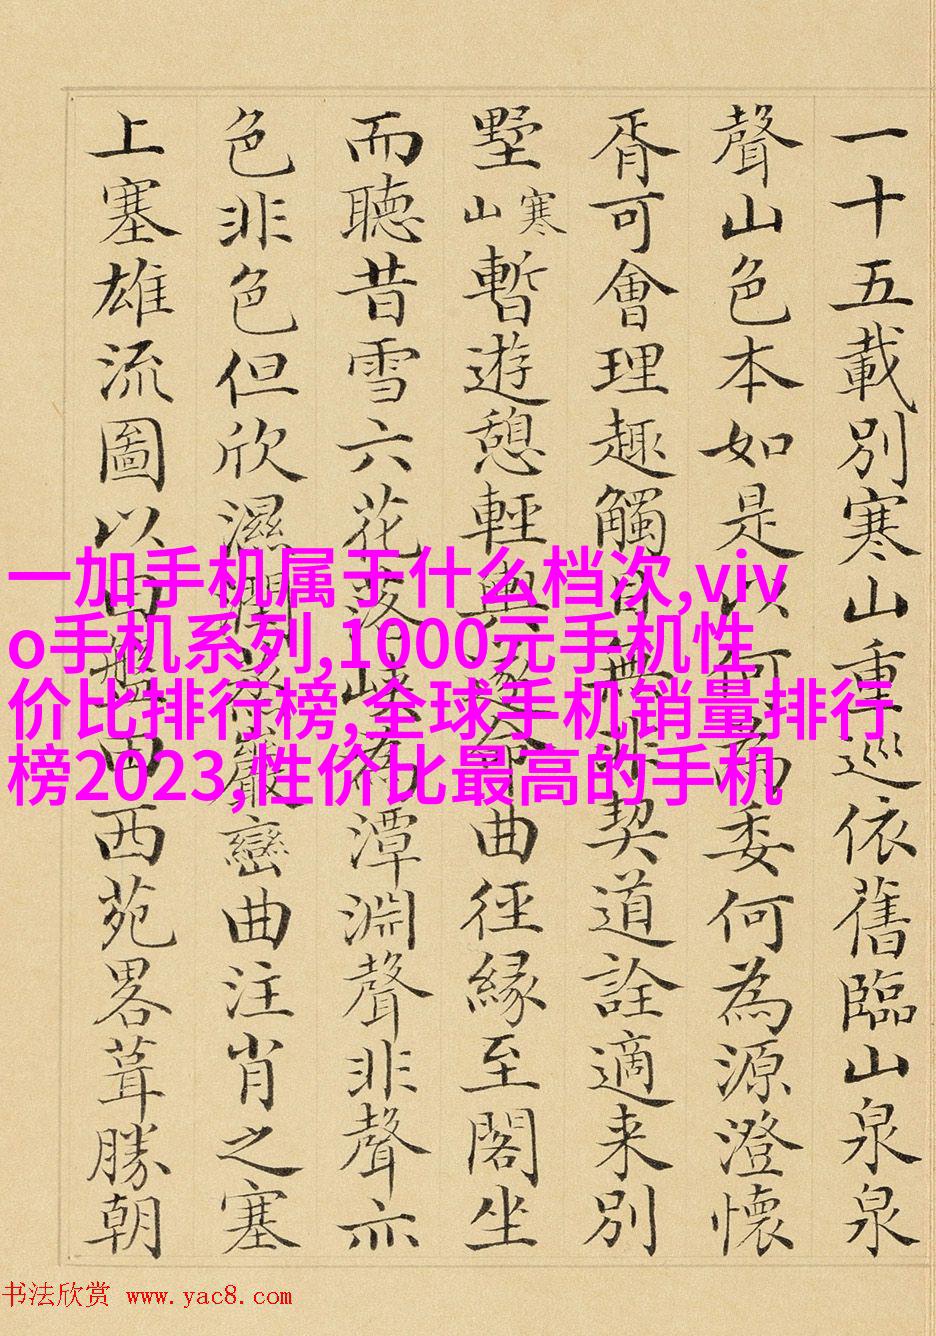 一十五載別寒山重巡依舊臨山泉泉
聲山色本如是以何而委何為源澄懷
胥可會理趣觸目無非契道詮適来別
墅寒山暫遊憩輕輿命曲徑緣至閣坐
而聽昔雪六花落峽為潭淵聲非聲亦
色非色但欣濕潤巖巒曲注肖之塞
上塞雄流圖以西苑畧葺勝朝
一加手机属于什么档次,viv
o手机系列,1000元手机性
价比排行榜,全球手机销量排行
榜2023,性价比最高的手机
书法欣赏 www.yac8.com